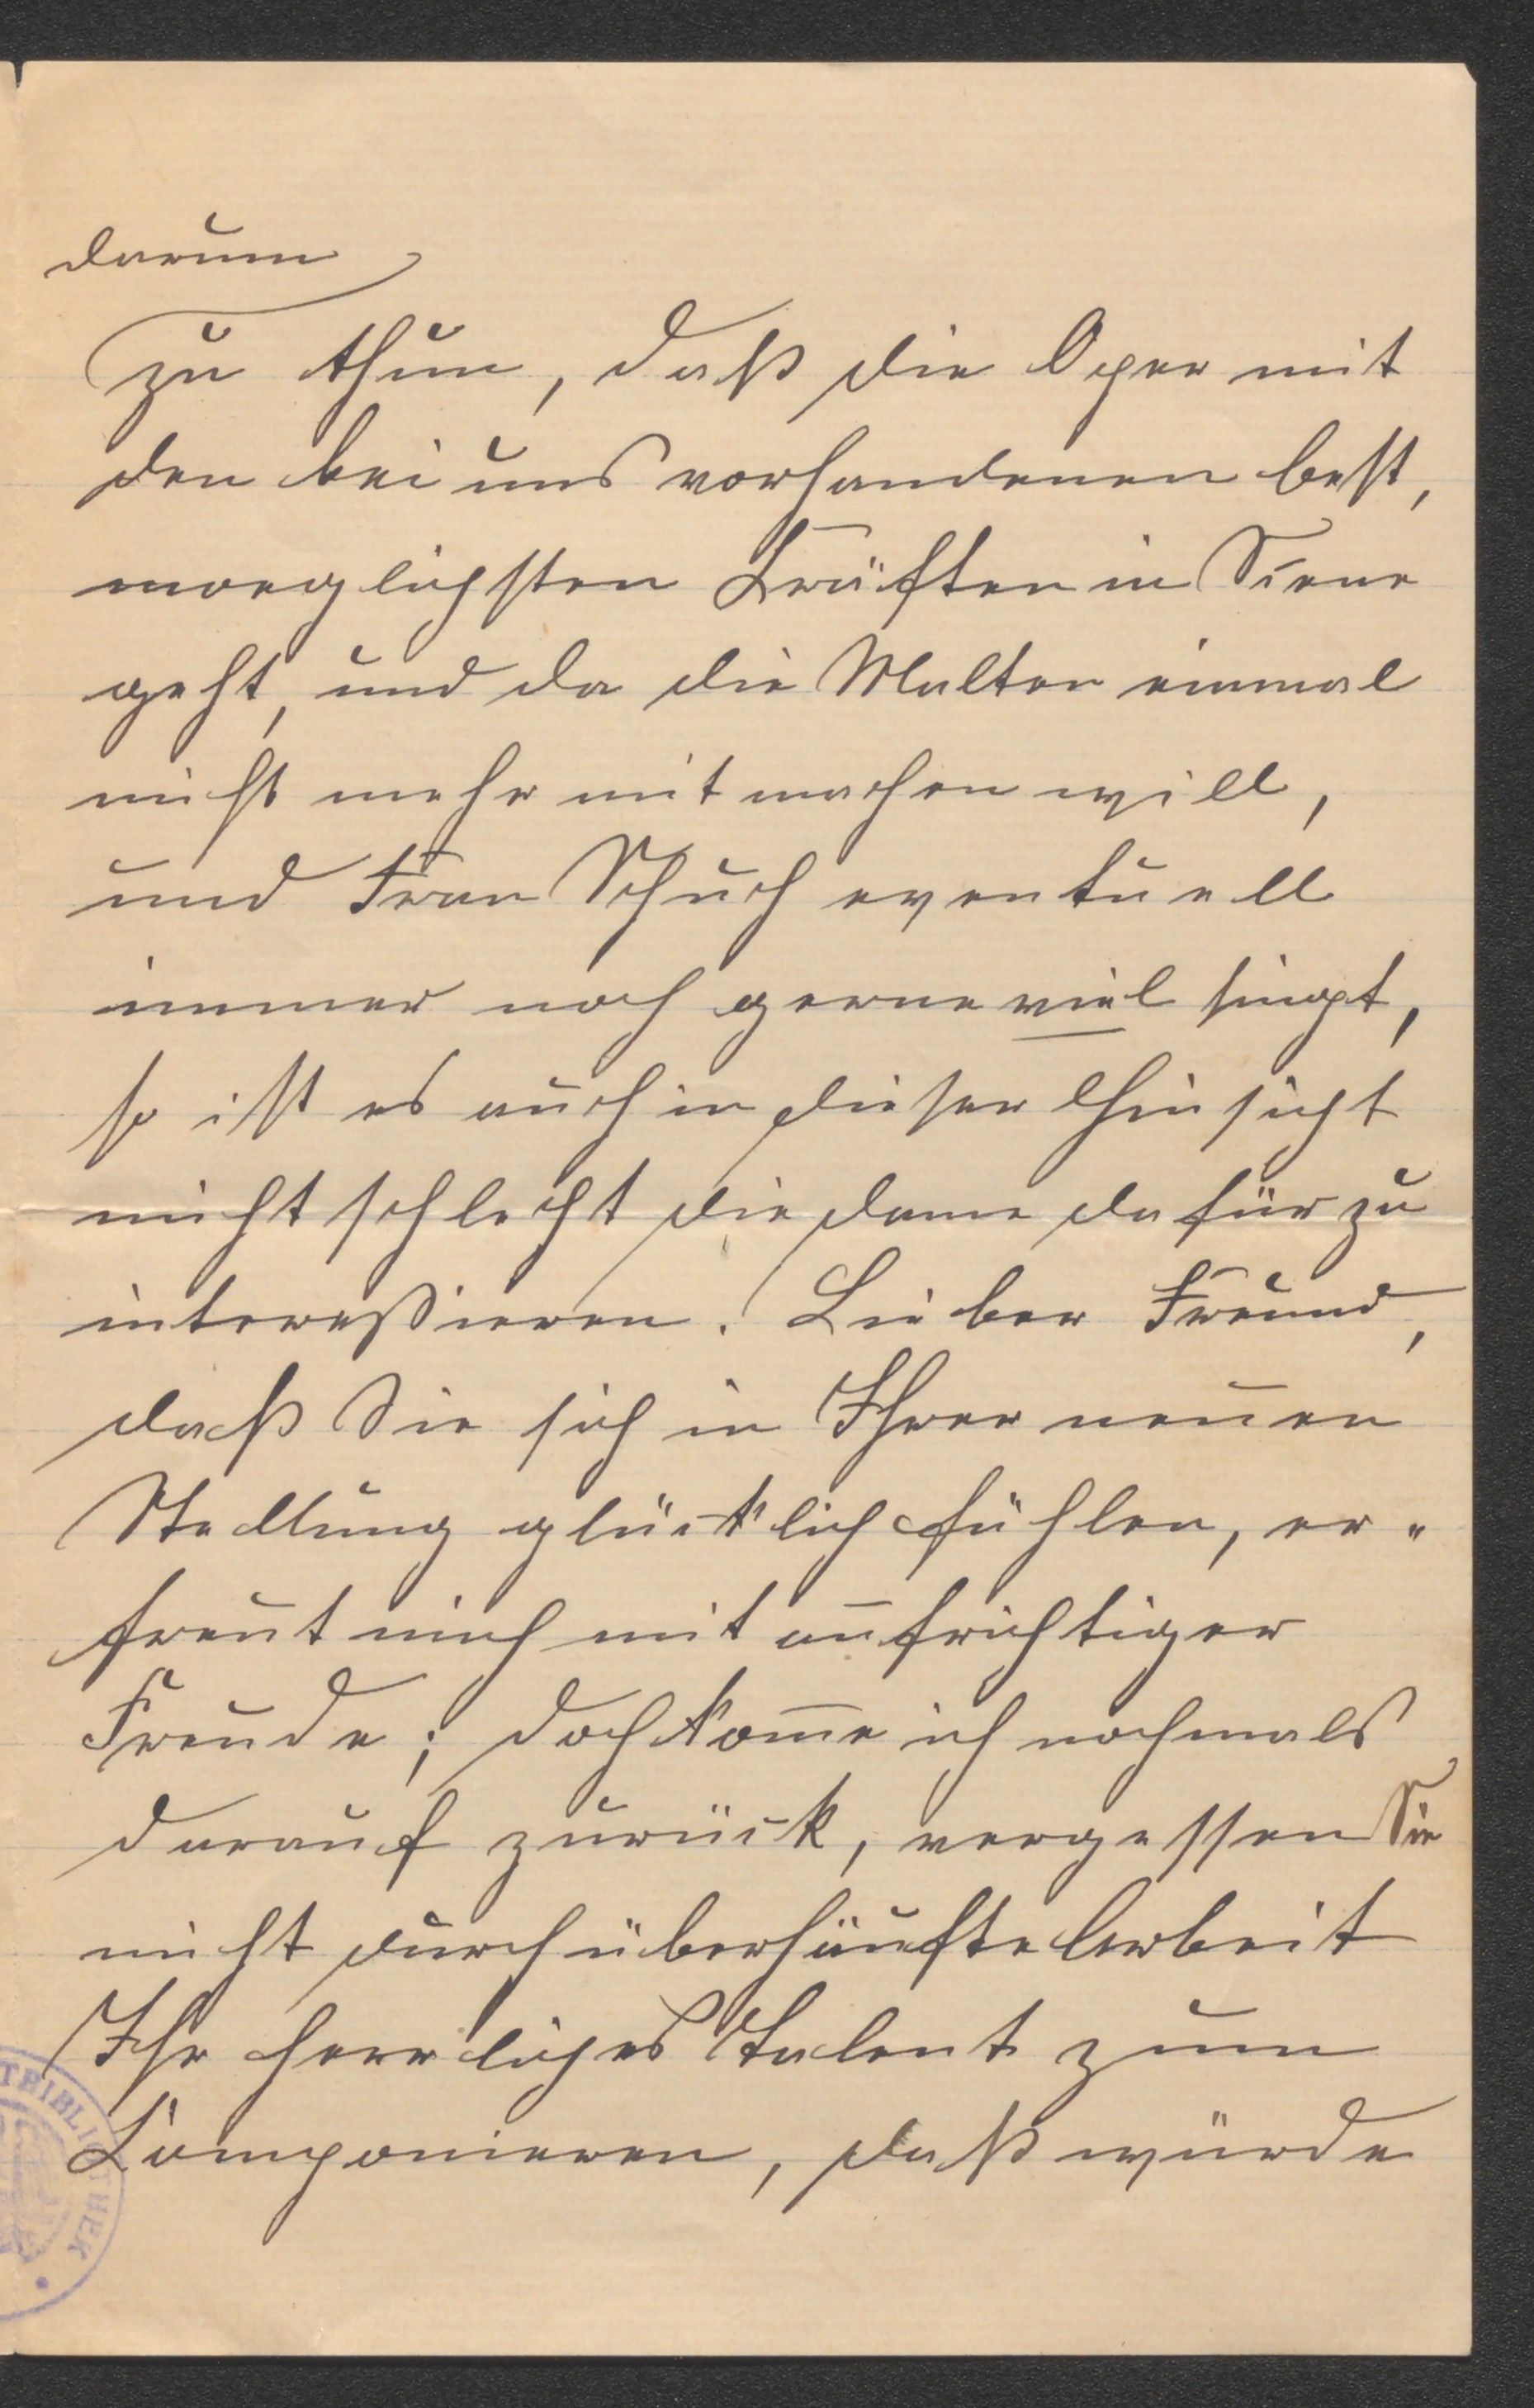 darum
zu thun, daß die Oper mit
den bei uns vorhandenen best,
moeglichsten Kräften in Scene
geht, und da die Malten einmal
nicht mehr mitmachen will,
und Frau Schuch eventuell
immer noch gerne viel singt,
so ist es auch in dieser Hinsicht
nicht schlecht die dame dafür zu
interessieren. Lieber Freund,
daß Sie sich in Ihrer neuen
Stellung glücklich fühlen, er"
freut mich mit aufrichtiger
Freude; doch kom̅e ich nochmals
darauf zurück, vergessen Sie
nicht durch überhäufte Arbeit
Ihr herrliches Talent zum
Componieren, daß würde